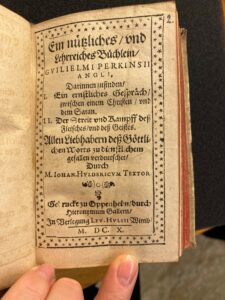 2.
Ein nützliches / vnd
Lehrreiches Büchlein /
GVILIELMI PERKINSII
ANGLI,
Darinnen zufinden /
I. Ein ernstliches Gespräch /
zwischen einem Christen / vnd
dem Satan.
II. Der Streit vnd Kampff deß
Fleisches / vnd deß Geistes.
Allen Liebhabern deß Göttli-
chen Worts zu dienstlichem
gefallen verdeutschet /
Durch
M. IOHAN. HVLDERICVM TEXTOR
Getruckt zu Oppenheim / durch
Hieronymum Gallern /
In Verlegung LEV. HVLSII Witwe
M. DC. X.